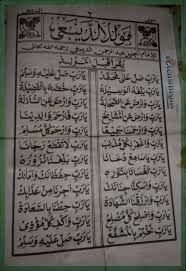 مولد الديبعي
للامام الجليل عبد الرحمن الديبعي رحمه الله تعالى
يقرأ قبل المولد
يارب صل على محمد يارب صل عليه وسلم
يارب بلغه الوسيلة يارب خصه بالفضيلة
يارب وارض عن الصحابة يارب وارض عن السلالة
يارب وارض عن المشايخ يارب وارحم والدينا
يارب وارحمنا جميعا يارب وارحم كل مسلم
يارب واغفر لكل مذنب يارب لا تقطع رجانا
يارب يا سامع دعانا يارب بلغنا نزوره
يارب تغشانا بنوره يارب حفظانك وامانك
يارب واسكنا جنانك يارب اجرنا من عذابك
يارب وارزقنا الشهادة يارب حطنا بالسعادة
يارب واصلح كل مصلح يارب واكف كل مؤذي
يارب نختم بالمشفع يارب صل عليه وسلم